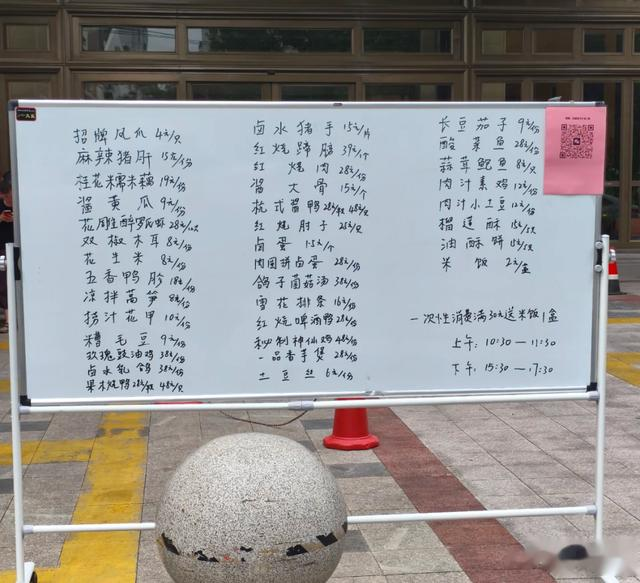 招牌凤爪 4元/只
麻辣猪肝 15元/份
桂花糯米藕 19元/份
酱黄瓜 9元/份
花雕醉罗氏虾 28元/10只
双椒木耳 8元/份
花生米 8元/份
五香鸭胗 18元/份
凉拌莴笋 8元/份
捞汁花甲 10元/份
糟毛豆 9元/份
玫瑰豉油鸡 38元/份
卤水乳鸽 38元/份
果木烧鸭 28元/半只 48元/只
卤水猪手 15元/片
红烧蹄膀 39元/个
红烧肉 28元/份
酱大骨 15元/个
杭式酱鸭 28元/半只 48元/只
红烧肘子 25元/只
卤蛋 1.5元/个
肉圆饼卤蛋 28元/份
鸽子菌菇汤 38元/份
雪花排条 16元/份
红烧啤酒鸭 28元/份
秘制神仙鸡 48元/份
一品香芋煲 28元/份
土豆丝 6元/份
长豆茄子 9元/份
酸菜鱼 28元/份
蒜茸鲍鱼 8元/只
肉汁素鸡 12元/份
肉汁小土豆 12元/份
榴莲酥 15元/5只
油酥饼 15元/5只
米饭 2元/盒
一次性消费满30元送米饭1盒
上午：10:30—11:30
下午：15:30—17:30